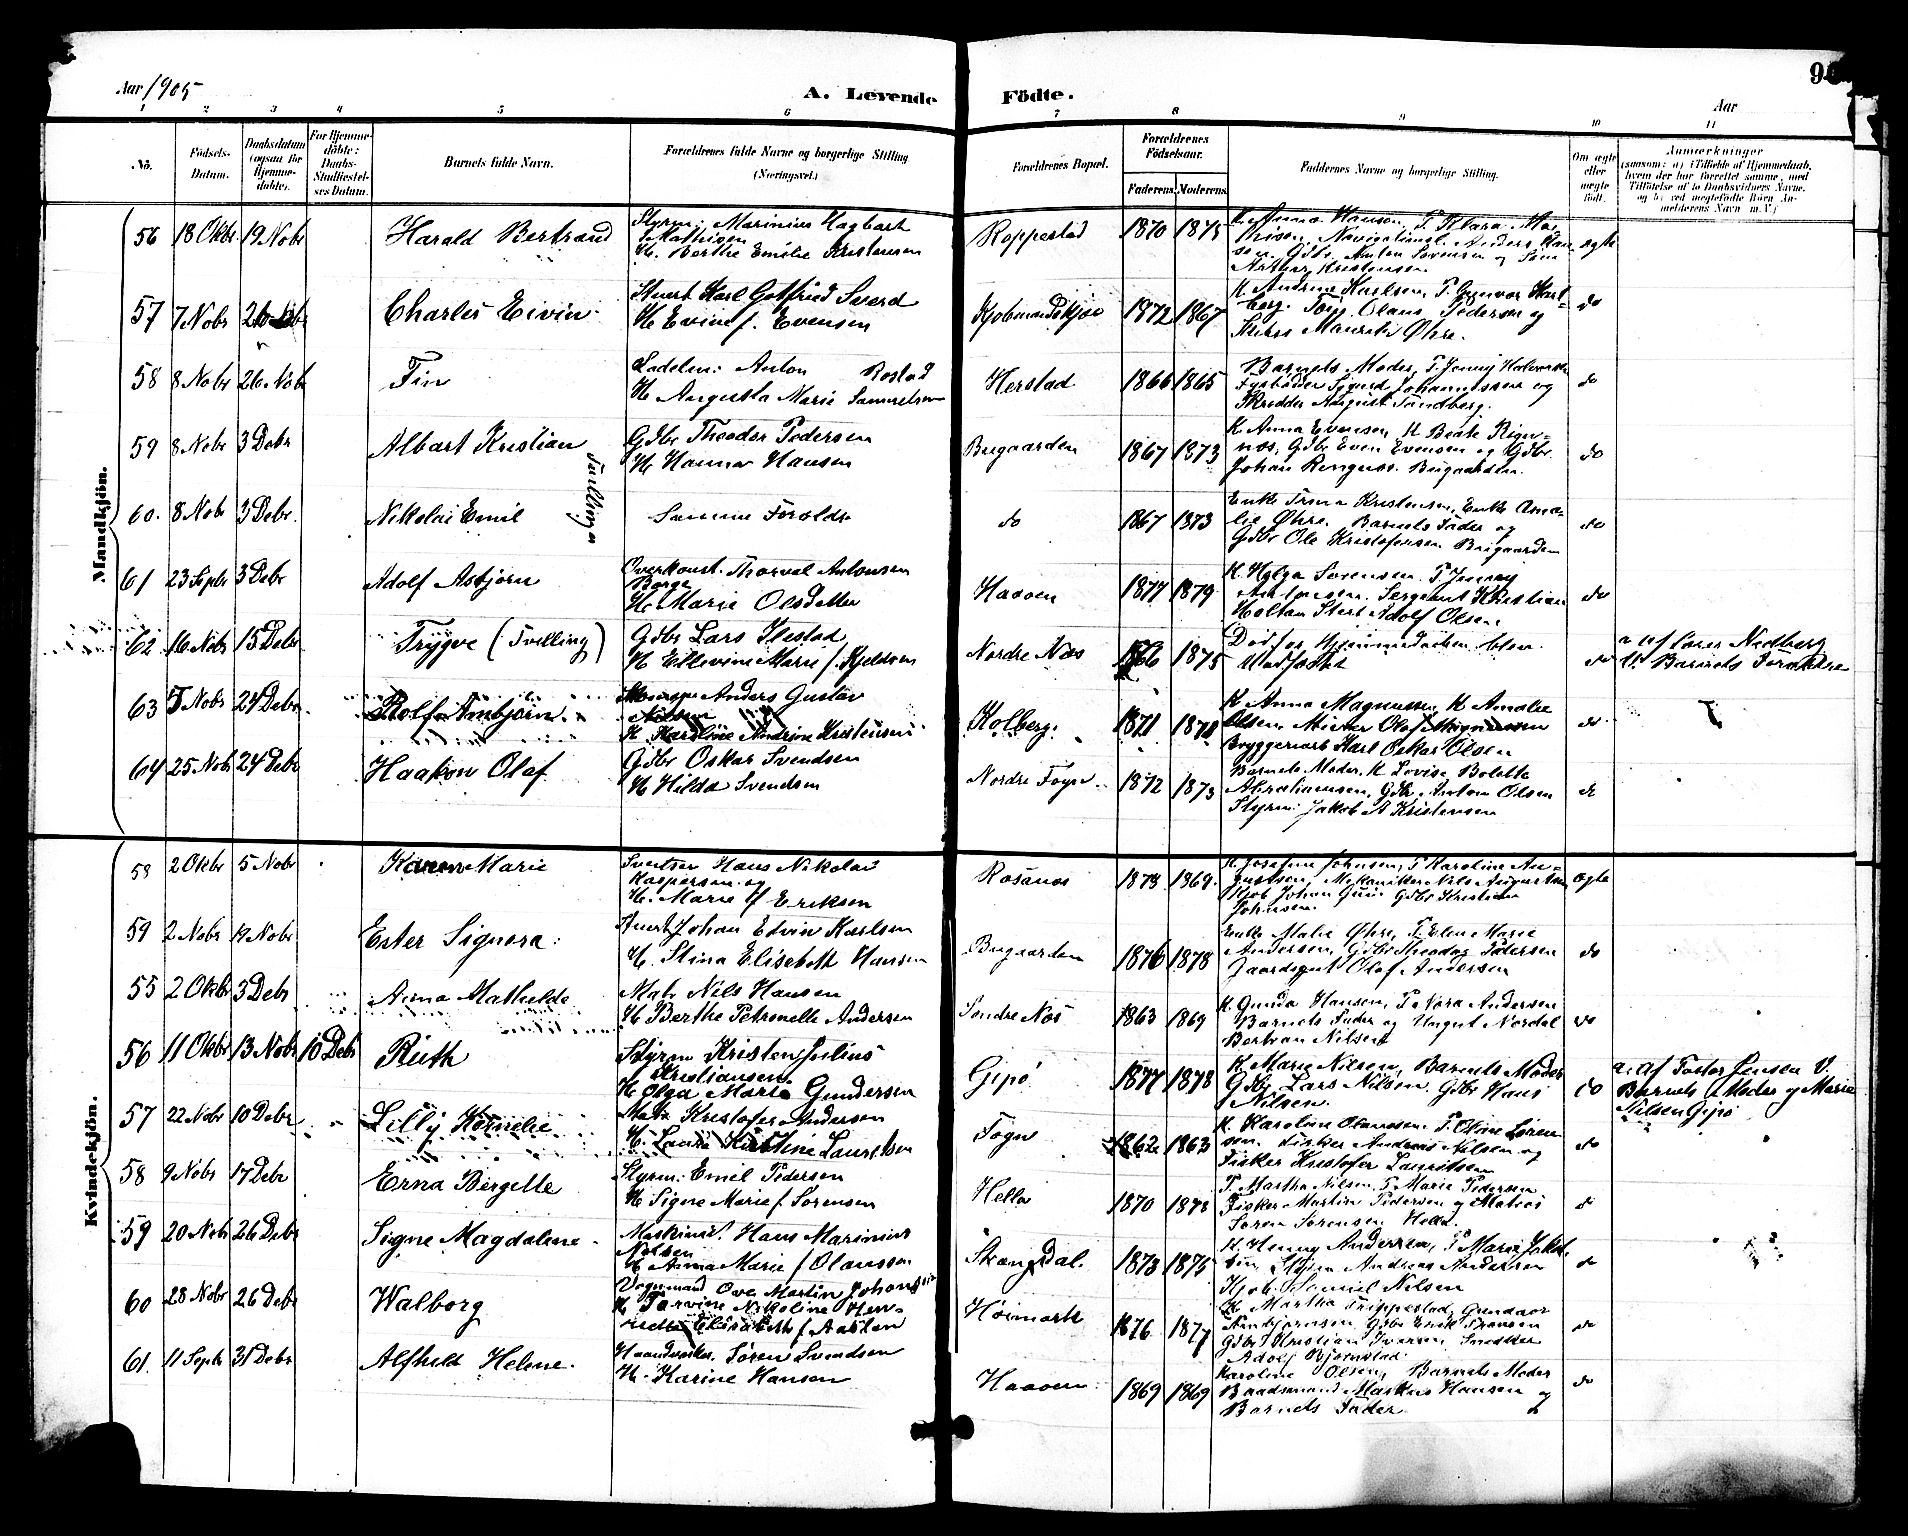 Aar 1905
A. Levende Födte.
Aar
1 2 3 4 5 6 7 8 9 10 11
No. Födsels-Datum. Daabsdatum (ogsaa for Hjemme-döbte). For Hjemme-döbte: Daabs-Stadfæstel-ses Datum. Barnets fulde Navn. Forældrenes fulde Navne og borgerlige Stilling (Næringsvei.) Forældrenes Bopæl. Forældrenes Födselsaar. Faderens. Moderens. Faddernes Navne og borgerlige Stilling. Om ægte eller uægte födt. Anmærkninger
(saasom: a) i Tilfælde af Hjemmedaab, hvem der har forrettet samme, med Tilföielse af to Daabsvidners Navne, og b) ved uægtefödte Börn An-melderens Navn m. V.)
Mandkjön.
56 18 Oktbr 19 Nobr Harald Bertrand Styrm: Marinius Hagbart
Mathisen
H. Berthe Emilie Kristensen Roppestad 1870 1875 K Anna Hansen, P. Klara Ma-
thisen, Anders Han-
sen, Gdbr Anton Sørensen og Søm
Arthur Kristensen ægte
57 7 Nobr 26 Nobr Charles Eivin Stuert Karl Gotfried Sverd
H Evine f. Evensen 1872 1867 K Andrine Karlsen, P. Gunvor Karl-
berg. Tøm. Olaus Pedersen og
Maurits Øhre. do
58 8 Nobr 26 Nobr Fin Sadelm: Anton Rostad
H Augusta Marie Samuelsen Herstad 1866 1865 Barnets Moder, P. Jenny Halvorsen
Sigurd Johannessen og
Skredder August Sandberg. do
59 8 Nobr 3 Debr Albart Kristian Gdbr Theodor Pedersen
H Hanna Hansen Bugaarden 1867 1873 K Anna Evensen, K Beate Ring-
næs, Gdbr Even Evensen og Gdbr
Johan Ringnæs. Bugaarden. do
Tvillinger
60. 8 Nobr 3 Debr. Nikolai Emil Samme Foreldre do 1867 1873 Enke Trina Kristensen, Enke Ama-
lie Øhre, Barnets Fader og
Gdbr Ole Kristofersen Bugaarden do
61 23 Septr 3 Debr Adolf Asbjørn Overkonst. Thorval Antonsen
Borge
H. Marie Olsdatter Haaven 1877 1879 K. Helga Sørensen. P. Jenny
Antonsen. Sergeant Kristian
Holtan Stert Adolf Olsen do
62 16 Nobr 15 Debr Trygve (Tvilling) Gdbr Lars Ilestad
H Ellevine Marie f. Kjelsen Nordre Næs 1875 Døde før Hjemmedaaben blev
stadfæstet do a af Lars Nedberg
V. Barnets Forældre
63 5 Nobr 24 Debr Rolf Arnbjørn Anders Gustav
Nilsen
H Karoline Andrine Kristensen Kolberg. 1871 1871 K Anna Magnussen, K Amalie
Olsen, Murer Olaf Magnussen
Bryggeriarb Karl Oskar Olsen do
64 25 Nobr 24 Debr Haakon Olaf Gdbr Oskar Svendsen
H Hilda Svendsen Nordre Føyn 1872 1873 Barnets Moder, K Lovise Bolette
Abrahamsen, Gdbr Anton Olsen
Styrm: Jakob A Kristensen do
Kvindekjön.
53 2 Oktbr 5 Nobr Karen Marie Svertser Hans Nikolai
Kaspersen og
H. Marie f Eriksen Rosanes 1873 1869. K. Josefine Johnsen, P Karoline Au-
gustsen, Mekaniker Nils Augustsen
Johan Gdbr Kristian
Johnsen ægte
59 2 Nobr 19 Nobr Ester Signora Stuert Johan Edvin Karlsen
H. Stina Elisebeth Hansen Bugaarden 1876 1878 Enke Malie Øhre, P. Elen Marie
Andersen, Gdbr Theodor Pedersen
Gaardsgut Olaf Andersen do
55 2 Oktbr 3 Debr Anna Mathilde Matr Nils Hansen
H Berthe Petronelle Andersen Søndre Næs 1863 1869 K. Gunda Hansen, P. Nora Andersen
Barnets Fader og Ungut Nordal
Bertran Nilsen do
56 11 Oktbr 13 Nobr 10 Debr Ruth Styrm Kristen Julius
Kristiansen
H Olga Marie Gundersen Gipø 1877 1878 K Marie Nilsen, Barnets Moder
Gdbr Lars Nilsen, Gdbr Hans
Nilsen. do a: Af Pastor Jensen V.
Barnets Moder og Marie
Nilsen Gipø
57 22 Nobr 10 Debr Lilly Kornelie Matr Kristofer Andersen
H. Laura Kirstine Lauretsen Føgne 1862 1863 K. Karoline Olaussen, P. Oline Loren-
sen. Fisker Andreas Nilsen og
Fisker Kristofer Lauritsen do
58 9 Nobr 17 Debr Erna Birgette Styrm: Emil Pedersen
H Signe Marie f. Sørensen Hella 1870 1873 P. Martha Nilsen, P Marie Pedersen
Fisker Martin Pedersen og Matros
Søren Sørensen Hella. do
59 20 Nobr 26 Debr Signe Magdalene Maskinist Hans Marinius
Nilsen
H Anna Marie f Olaussen Skængdal. 1873 1875 K. Henny Andersen, P Marie Jakob-
sen, Styrm Andreas Andersen
Kjøb. Samuel Nilsen do
60 28 Nobr 26 Debr Walborg Vognmand Ove Martin Johansen
H Torvine Nikoline Hen-
riette Elisabeth f Aasten Høimark 1876 1877 K Martha Trippestad, Gundaor
Arnbjørnsen, Gdbr Enok Fransen
Gdbr Kristian Iversen, Snekker
Adolf Bjørnstad do
61. 11 Septr 31 Debr Alfhild Helene Haandverker Søren Svendsen
H. Karine Hansen Haaven 1869 1869 Karoline Olsen, Barnets Moder
Baadsmand Markus Hansen og
Barnets Fader do